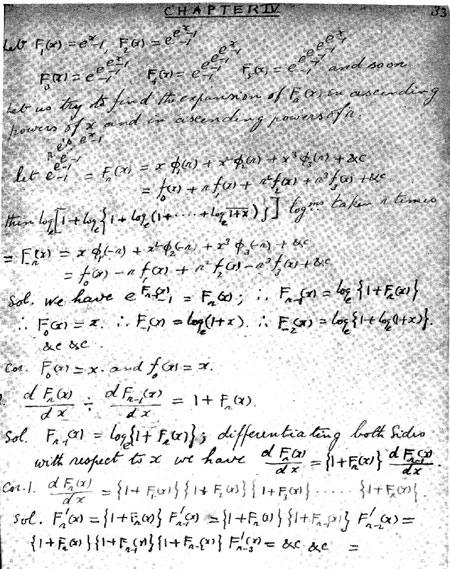 CHAPTER IV 33
Let F₁(x) = e^x − 1, F₂(x) = e^{e^x − 1} − 1
let us try to find the expansion of Fₙ(x) in ascending
powers of x and in ascending powers of n.
= Fₙ(x) = x φ₁(n) + x² φ₂(n) + x³ φ₃(n) + &c
= f₀(x) + n f₁(x) + n² f₂(x) + n³ f₃(x) + &c
then logₑ[1 + logₑ{1 + logₑ(1 + ····· + logₑ(1+x))}] log^ms taken n times
= F₋ₙ(x) = x φ₁(−n) + x² φ₂(−n) + x³ φ₃(−n) + &c
= f₀(x) − n f₁(x) + n² f₂(x) − n³ f₃(x) + &c
Sol. We have e^{Fₙ₋₁(x)} − 1 = Fₙ(x); ∴ Fₙ₋₁(x) = logₑ{1 + Fₙ(x)}
∴ F₀(x) = x. ∴ F₋₁(x) = logₑ(1+x). ∴ F₋₂(x) = logₑ{1 + logₑ(1+x)}.
&c &c
Cor. F₀(x) = x. and f₀(x) = x.
1. dFₙ(x)/dx ÷ dFₙ₋₁(x)/dx = 1 + Fₙ(x).
Sol. Fₙ₋₁(x) = logₑ{1 + Fₙ(x)}; differentiating both sides
with respect to x we have dFₙ(x)/dx = {1 + Fₙ(x)} dFₙ₋₁(x)/dx.
Cor. 1. dFₙ(x)/dx = {1 + F₁(x)}{1 + F₂(x)}{1 + F₃(x)} ······ {1 + Fₙ(x)}.
Sol. F′ₙ(x) = {1 + Fₙ(x)} F′ₙ₋₁(x) = {1 + Fₙ(x)}{1 + Fₙ₋₁(x)} F′ₙ₋₂(x) =
{1 + Fₙ(x)}{1 + Fₙ₋₁(x)}{1 + Fₙ₋₂(x)} F′ₙ₋₃(x) = &c &c =